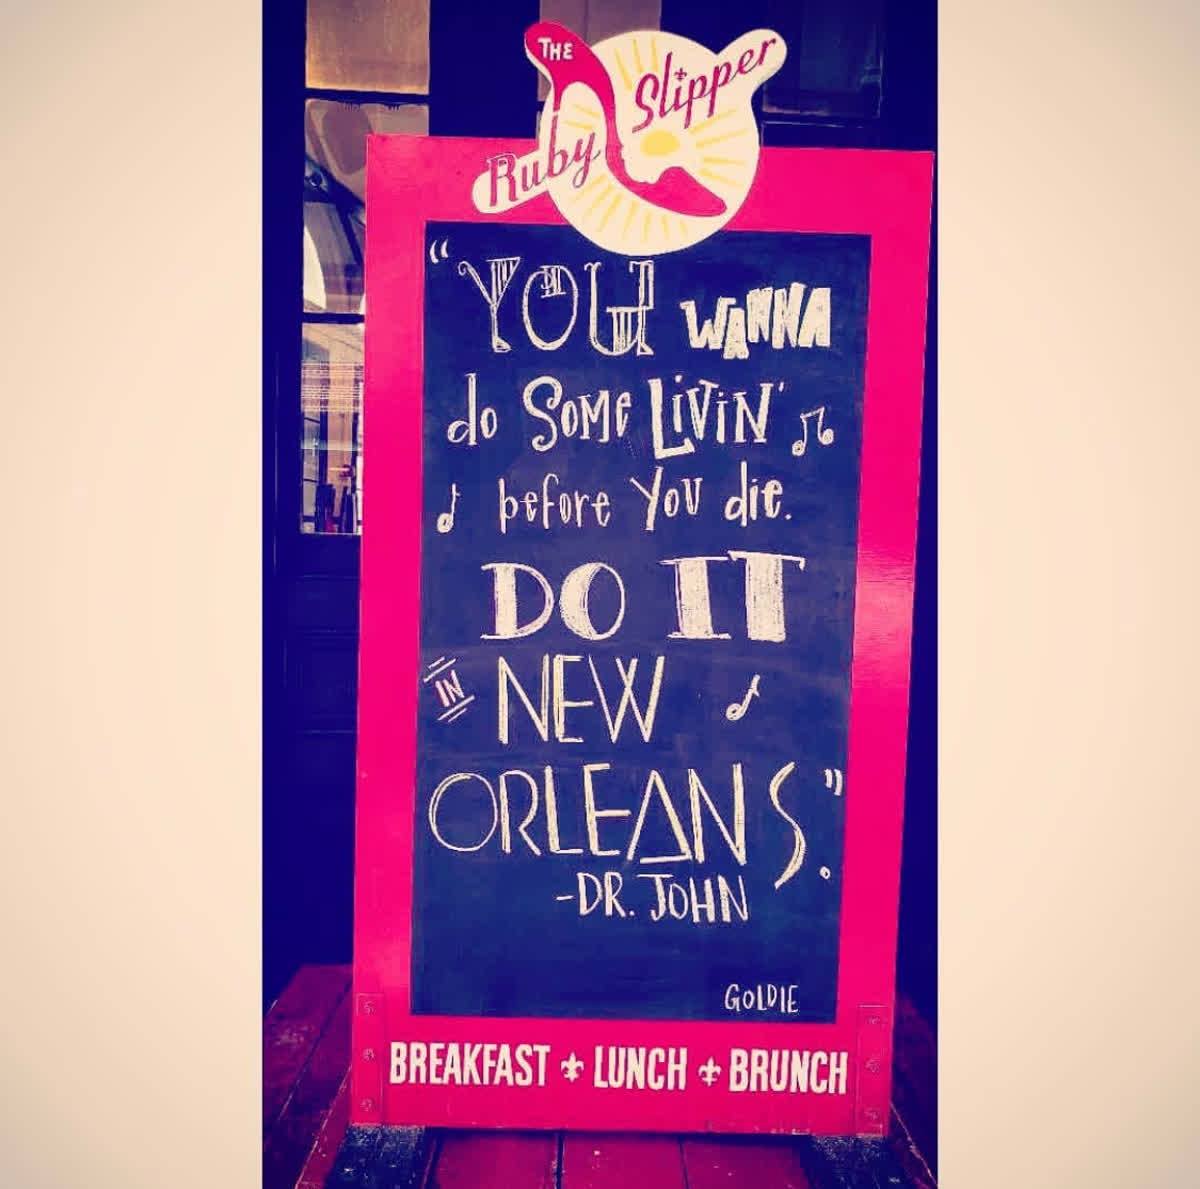 THE
Ruby Slipper
"YOU WANNA
do SOME LiViN'
before You die.
DO IT
IN NEW
ORLEANS."
-DR. JOHN
GOLDIE
BREAKFAST ⚜ LUNCH ⚜ BRUNCH